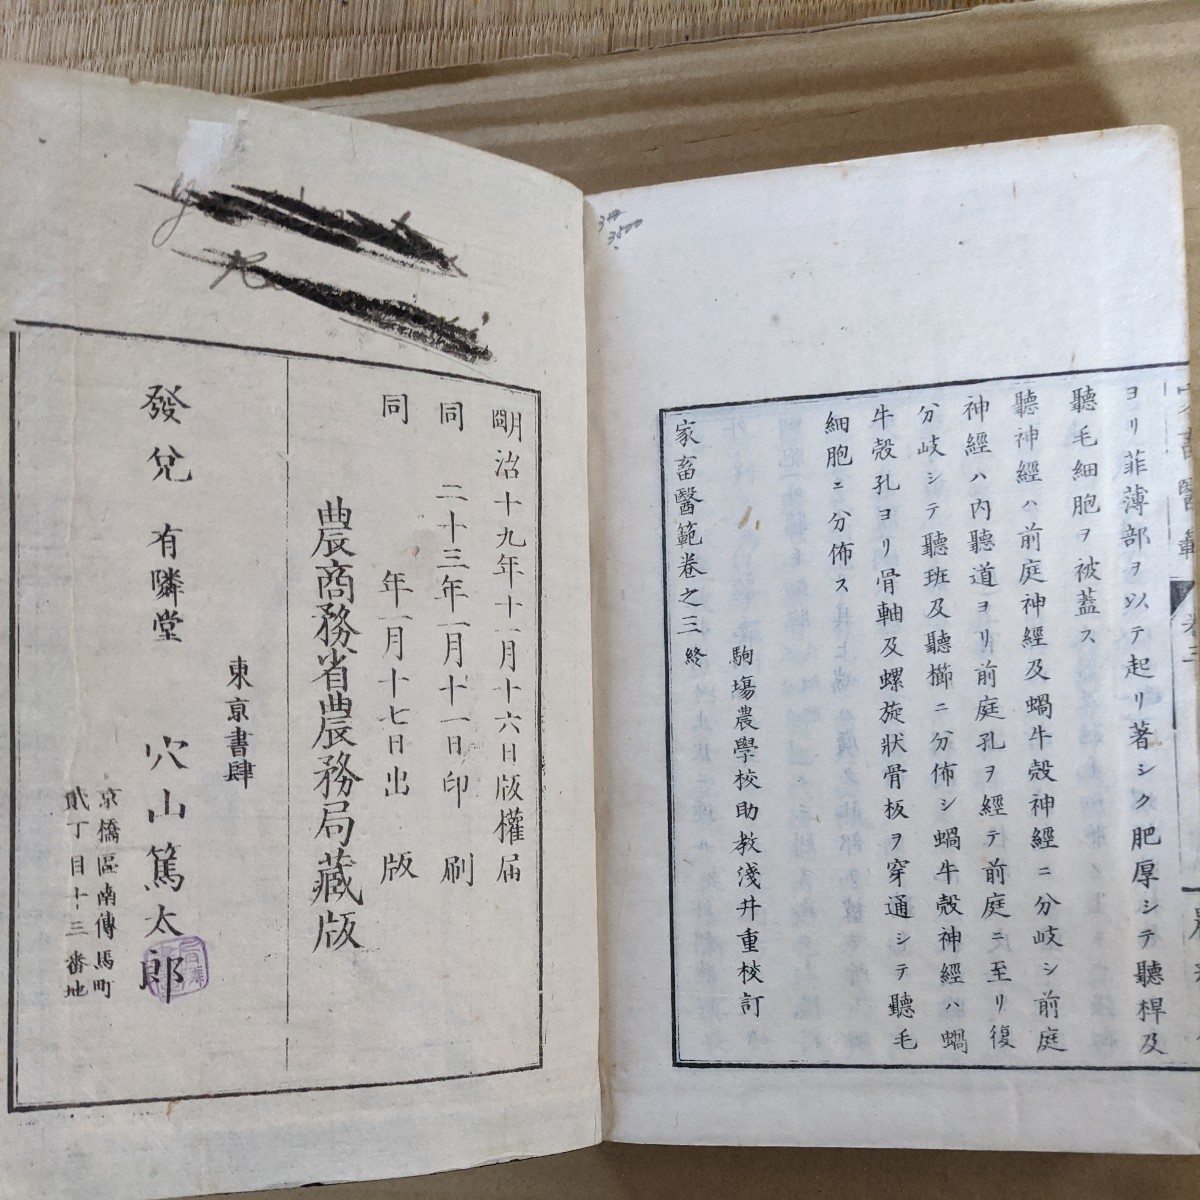 ヨリ菲薄部ヲ以テ起リ著シク肥厚シテ聽桿及
聽毛細胞ヲ被蓋ス
聽神經ハ前庭神經及蝸牛殼神經ニ分岐シ前庭
神經ハ内聽道ヨリ前庭孔ヲ經テ前庭ニ至リ復
分岐シテ聽班及聽櫛ニ分佈シ蝸牛殼神經ハ蝸
牛殼孔ヨリ骨軸及螺旋狀骨板ヲ穿通シテ聽毛
細胞ニ分佈ス
駒塲農學校助教淺井重校訂
家畜醫範卷之三終
34
3500
明治十九年十一月十六日版權届
同二十三年一月十一日印刷
同年一月十七日出版
農商務省農務局藏版
東京書肆
發兌有隣堂穴山篤太郎
京橋區南傳馬町
貳丁目十三番地